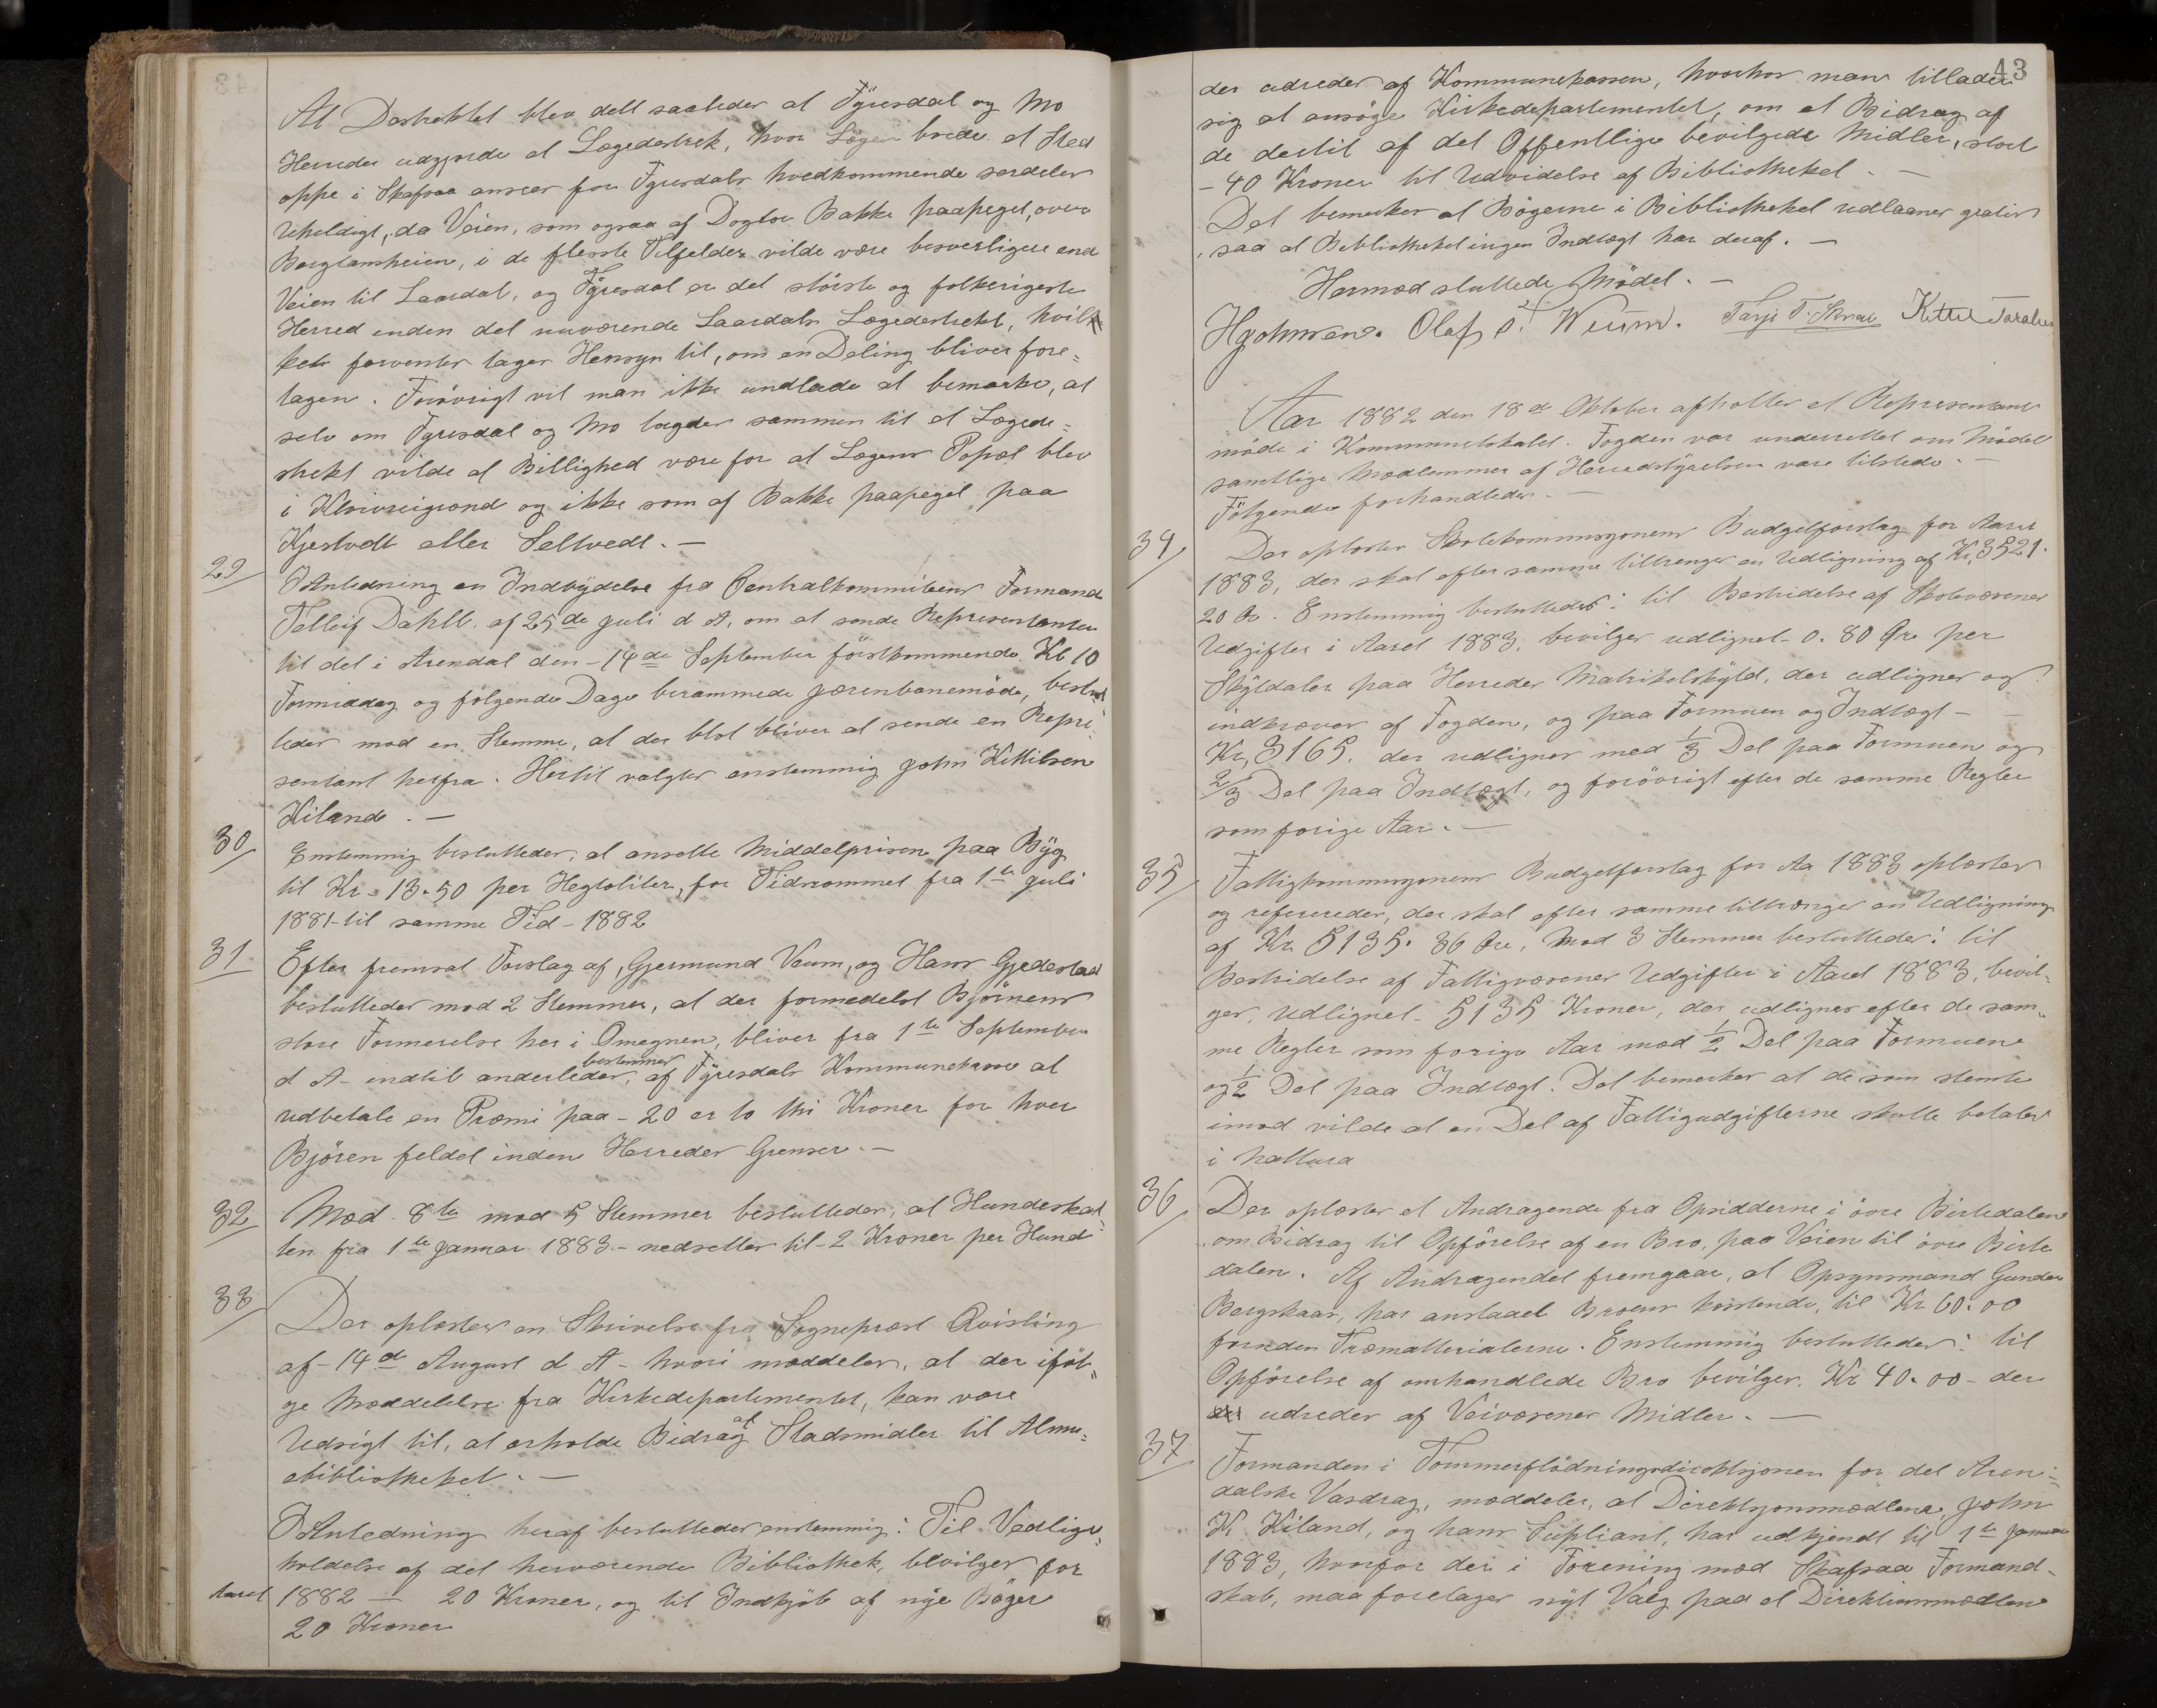 At Destrektet blev delt saaledes at Fyresdal og Mo
Herreder udgjorde et Lægedestrek, hvor Lægen boede et Sted
oppe i Skafsaa ansees for Fyresdals hvedkommende særdeles
uheldigt, da Veien, som ogsaa af Dogtor Bakke paapeget, over
Borgtamheien, i de fleste Tilfelder vilde være besværligere end
Veien til Laardal, og Fyresdal er det störste og folkerigeste
Herred inden det nuværende Laardals Lægedestrekt, hvil
ket forventes tages Hensyn til, om en Deling bliver fore=
tagen. Forövrigt vil man ikke undlade at bemærke, at
selv om Fyresdal og Mo lægdes sammen til et Lægede=
strekt vilde al Billighed være for at Lægens Bopæl blev
i Kleivreigrænd og ikke som af Bakke paapeget paa
Kjestvedt eller Seltvedt. —
29/ I Anledning en Indbydelse fra Centralkommiteens Formand
Telleif Dahll af 25de Juli d A, om at sende Representanter
til det i Arendal den – 14de September förstkommende Kl 10
Formiddag og fölgende Dage berammede Jærenbanemöde, beslut
tedes mod en Stemme, at der blot bliver at sende en Repre=
sentant herfra. Hertil valgtes enstemmig John Kittilsen
Kiland. —
30/ Enstemmig besluttedes, at ansette Middelprisen paa Byg
til Kr. 13.50 per Hegtoliter, for Tidsrommet fra 1te Juli
1881 til samme Tid – 1882
31 Efter fremsat Forslag af, Gjermund Veum, og Hans Gjedestad
besluttedes mod 2 Stemmer, at der formedelst Björnens
store Formerelse her i Omegnen, bliver fra 1te September
d A – indtil anderledes bestemmes, af Fyresdals Kommunekasse at
udbetale en Præmi paa – 20 er to thi Kroner for hver
Björen feldet inden Herredes Grenser. —
32/ Med 8te mod 5 Stemmer besluttedes, at Hundeskat
ten fra 1te Januar 1883 – nedsettes til – 2 Kroner per Hund
33/ Der oplæstes en Skrivelse fra Sogneprest Qvisling
af – 14de August d A – hvori meddeles, at der iföl=
ge Meddelelse fra Kirkedepartementet, kan være
Udsigt til, at erholde Bidrag af Stadsmidler til Almu=
ebibliotheket. —
I Anledning heraf besluttedes enstemmig: Til Vedlige=
holdelse af det herværende Bibliothek, bevilges for
Aaret 1882 — 20 Kroner, og til Indkjöb af nye Böger
20 Kroner
43
der udredes af Kommunekassen, hvorhos man tillader
sig at ansöge Kirkedepartementet, om et Bidrag af
de dertil af det Offentlige bevilgede Midler, stort
– 40 Kroner til Udvidelse af Bibliotheket. —
Det bemerkes at Bögerne i Bibliotheket udlaanes gratis
saa at Bibliotheket ingen Indtægt har deraf. —
Hermed sluttede Mödet. —
Olaf S. Weum. Tarje T. Kittel
Aar 1882 den 18de Oktober afholtes et Representant
möde i Kommunelokalet. Fogden var underrettet om Mödet
samtlige Medlemmer af Herredstyrelsen vare tilstede. —
Fölgende forhandledes. —
34/ Der oplæstes Skolekommisjonens Budgetforslag for Aaret
1883, der skal efter samme tiltrenges en Udligning af Kr 3521.
20 Ør. Enstemmig besluttedes: til Bestridelse af Skolevæsenes
Udgifter i Aaret 1883, bevilges udlignet – 0. 80 Øre per
Skyldaler paa Herredes Matrikelskyld, der udlignes og
indkræves af Fogden, og paa Formuen og Indtægt –
Kr, 3165. der udlignes med 1/3 Del paa Formuen og
2/3 Del paa Indtægt, og forövrigt efter de samme Regler
som forige Aar. —
35/ Fattigkommisjonens Budgetforslag for Aa 1883 oplæstes
og refereredes, der skal efter samme tiltrænges en Udligning
af Kr. 5135. 36 Øre, Mod 3 Stemmer besluttedes: til
Bestridelse af Fattigvæsenes Udgifter i Aaret 1883, bevil=
ges, udlignet – 5135 Kroner, der udlignes efter de sam=
me Regler som forige Aar med 1/2 Del paa Formuen
og 1/2 Del paa Indtægt. Det bemerkes at de som stemte
imod vilde at en Del af Fattigudgifterne skulle betales
i Nattura
36/ Der oplæstes et Andragende fra Opsidderne i övre Birtedalen
om Bidrag til Opförelse af en Bro, paa Veien til övre Birte
dalen. Af Andragendet fremgaar, at Opsynsmand Gunder
Bergskaas, har anslaaet Broens kostende, til Kr 60.00
foruden Træmatterialerne. Enstemmig besluttedes: til
Opförelse af omhandlede Bro bevilges. Kr 40.00 – der
udredes af Veivæsenes Midler. —
37/ Formanden i Tommerflödningsdirektsjonen for det Aren=
dalske Vasdrag, meddeler, at Direktsjonsmedlem, John
K Kiland, og hans Supliant, har udtjendt til 1te Januar
1883, hvorfor der i Forening med Skafsaa Formand=
skab, maa foretages nyt Valg paa et Direktionsmedlem